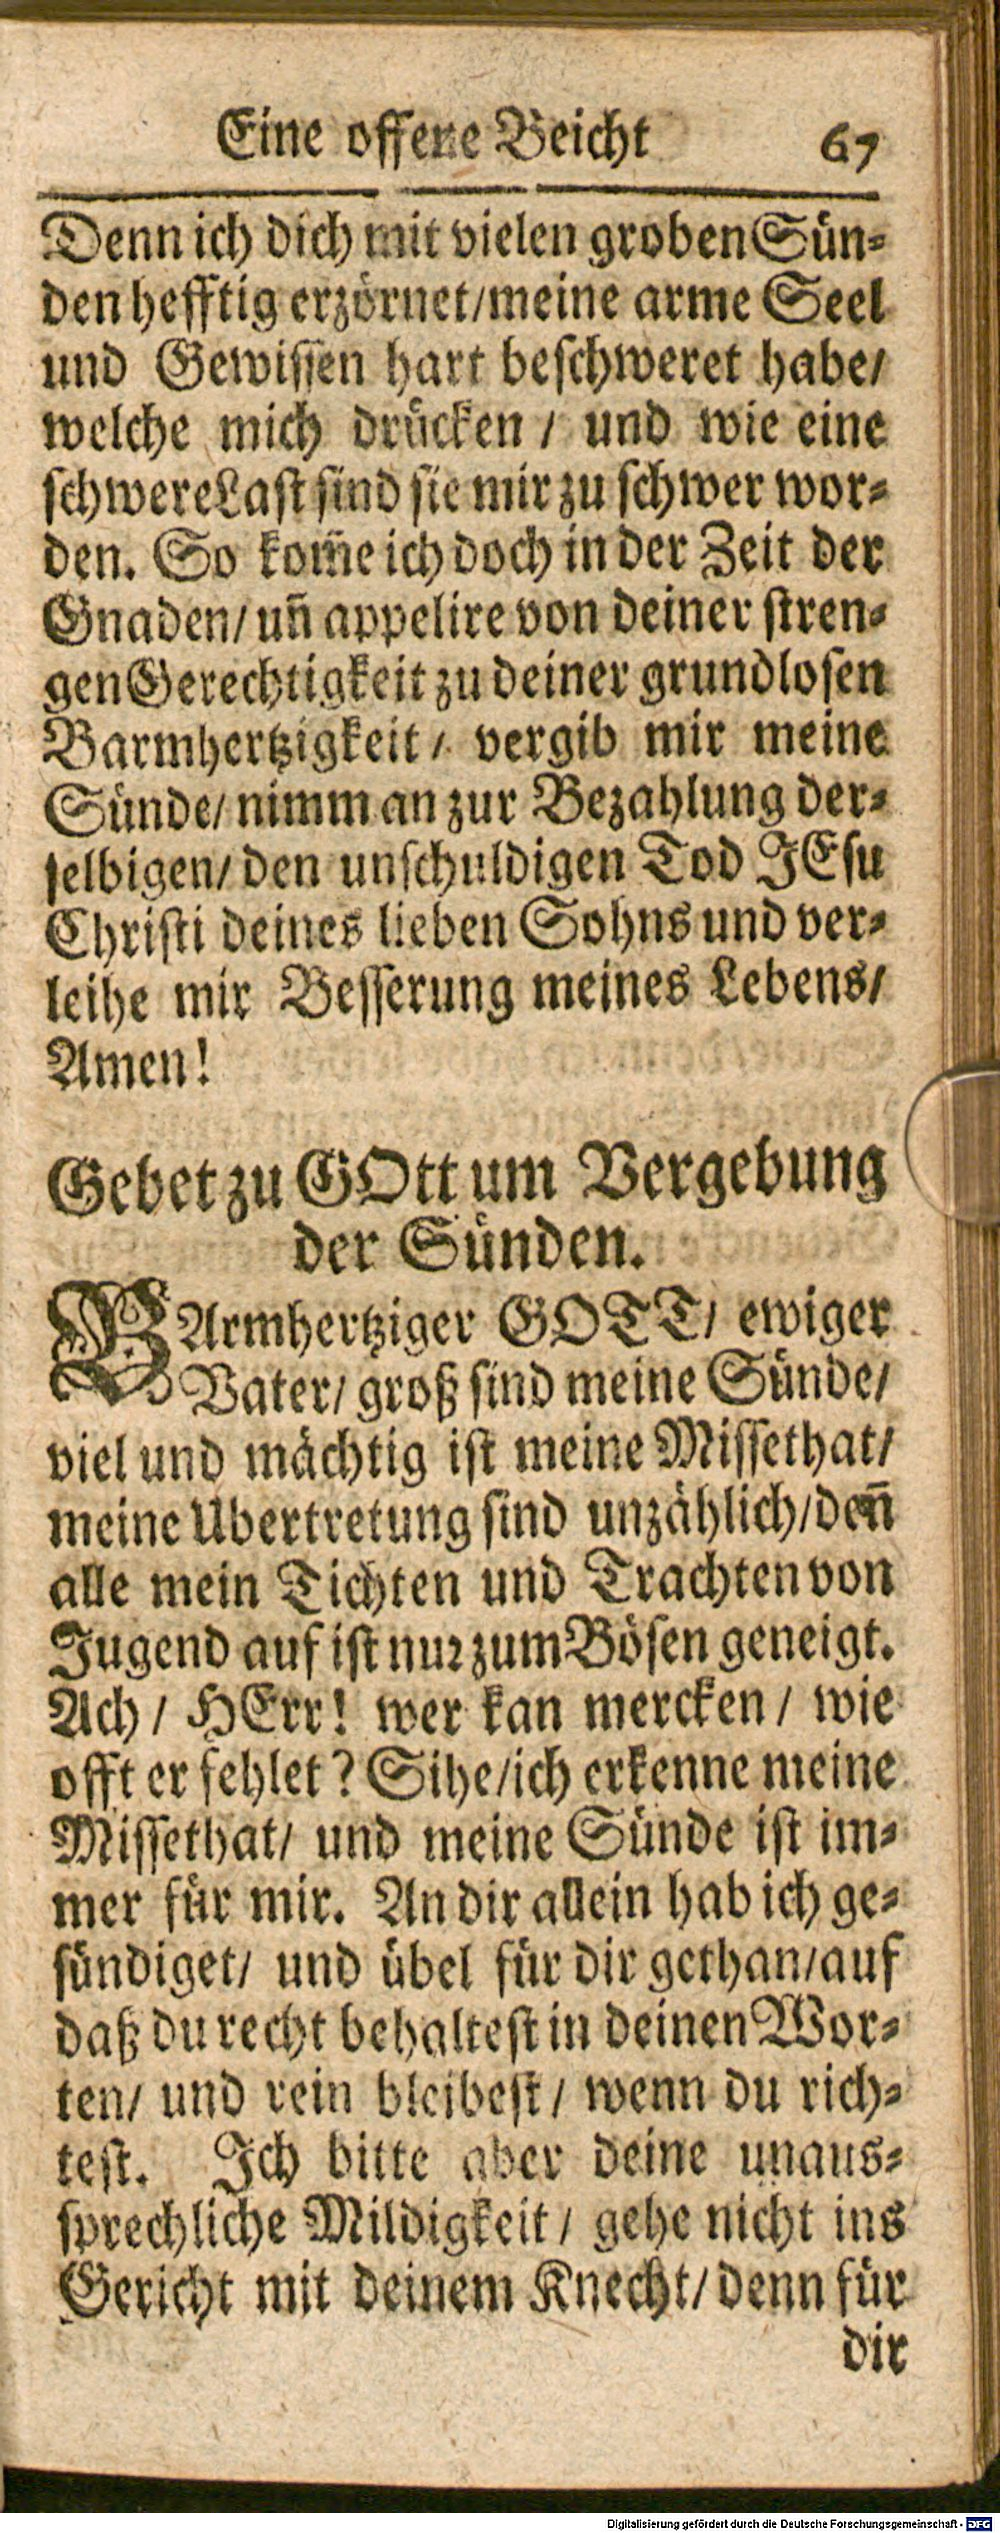 Eine offene Beicht 67
Denn ich dich mit vielen groben Sün-
den hefftig erzörnet/meine arme Seel
und Gewissen hart beschweret habe/
welche mich drücken / und wie eine
schwere Last sind sie mir zu schwer wor-
den. So kom̃e ich doch in der Zeit der
Gnaden/ uñ appelire von deiner stren-
gen Gerechtigkeit zu deiner grundlosen
Barmhertzigkeit / vergib mir meine
Sünde/ nimm an zur Bezahlung der-
selbigen/ den unschuldigen Tod JEsu
Christi deines lieben Sohns und ver-
leihe mir Besserung meines Lebens/
Amen!
Gebet zu GOtt um Vergebung
der Sünden.
BArmhertziger GOTT/ ewiger
Vater/ groß sind meine Sünde/
viel und mächtig ist meine Missethat/
meine Ubertretung sind unzählich/deñ
alle mein Tichten und Trachten von
Jugend auf ist nur zum Bösen geneigt.
Ach / HErr! wer kan mercken / wie
offt er fehlet? Sihe/ich erkenne meine
Missethat/ und meine Sünde ist im-
mer für mir. An dir allein hab ich ge-
sündiget/ und übel für dir gethan/auf
daß du recht behaltest in deinen Wor-
ten/ und rein bleibest / wenn du rich-
test. Ich bitte aber deine unaus-
sprechliche Mildigkeit / gehe nicht ins
Gericht mit deinem Knecht/ denn für
dir
Digitalisierung gefördert durch die Deutsche Forschungsgemeinschaft - DFG